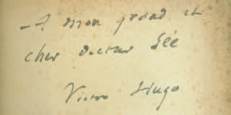 — A mon grand et
cher docteur Sée
Victor Hugo